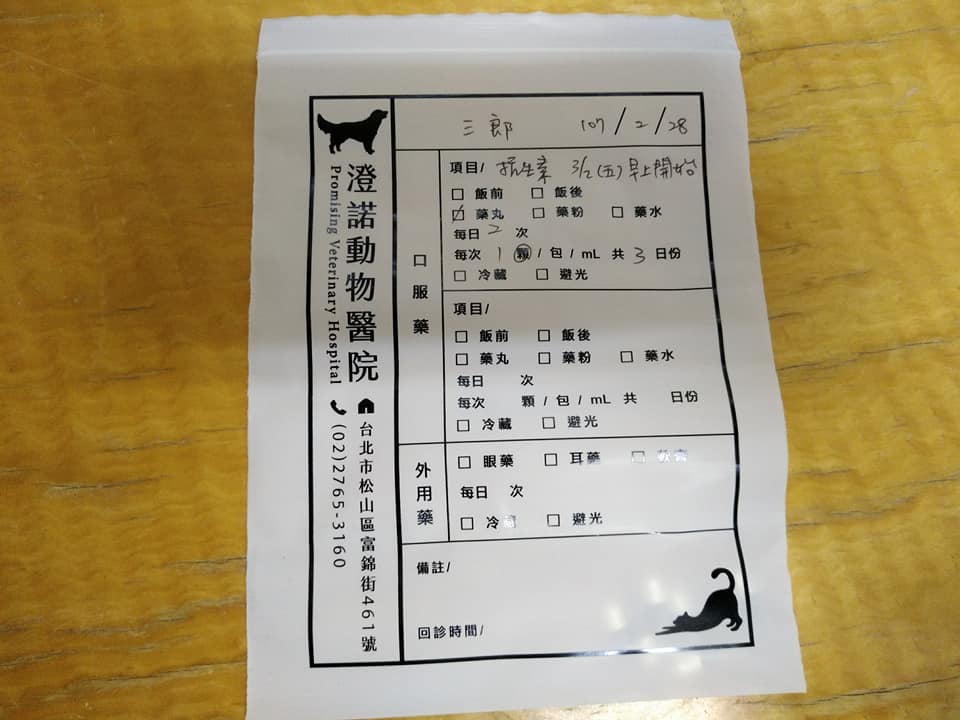 澄諾動物醫院
Promising Veterinary Hospital
台北市松山區富錦街461號
(02)2765-3160
三郎 107/2/28
口服藥
項目/ 抗生素 3/2(五)早上開始
□ 飯前 □ 飯後
☑ 藥丸 □ 藥粉 □ 藥水
每日 2 次
每次 1 顆 / 包 / mL 共 3 日份
□ 冷藏 □ 避光
項目/
□ 飯前 □ 飯後
□ 藥丸 □ 藥粉 □ 藥水
每日 次
每次 顆 / 包 / mL 共 日份
□ 冷藏 □ 避光
外用藥
□ 眼藥 □ 耳藥 □ 軟膏
每日 次
□ 冷藏 □ 避光
備註/
回診時間/